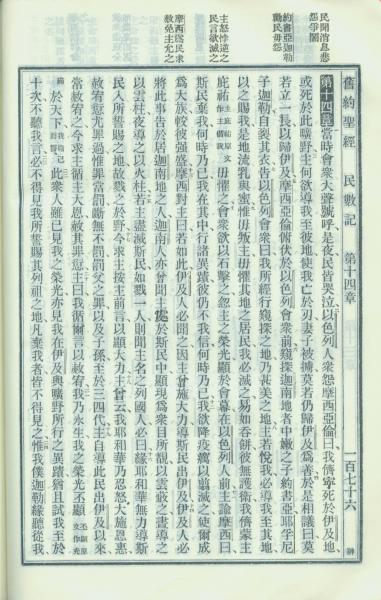 民聞消息悲
怨爭鬧
約書亞迦勒
勸民毋怨
主怒悖逆之
民言欲滅之
摩西爲民求
赦免主允之
舊約聖經 民數記 第十四章 一百七十六
第十四章 當時會衆大聲號呼是夜民皆哭泣以色列人衆怨摩西亞倫曰我儕寧死於伊及地
或死於此曠野主何欲導我至彼地使我亡於刃妻子被擄莫若仍歸伊及爲善於是相議曰莫
若立一長以歸伊及摩西亞倫俯伏於以色列會衆前窺探迦南地者中嫩之子約書亞耶孚尼
子迦勒自裂其衣告以色列會衆曰我所經行窺探之地乃甚美之地主若悅我必導我至其地
以之賜我是地流乳與蜜惟毋叛主毋懼其地之居民我必滅之易如吞餅彼無護衛我儕蒙主
庇祐主庇祐原文作主偕我毋懼之會衆欲以石擊之忽主之榮光顯於會幕在以色列人前主諭摩西曰
斯民棄我何時乃已我在其中行諸異蹟彼仍不我信何時乃已我欲降疫癘以翦滅之使爾成
爲大族較彼強盛摩西對主曰若如此伊及人必聞之因主曾施大力導斯民出伊及伊及人必
將此事告於居迦南地之人迦南人亦曾聞主處於斯民中顯現爲衆目所覩以雲蔽之晝導之
以雲柱夜導之以火柱若主盡滅斯民如戮一人則聞主名之列國人必曰緣耶和華無力導斯
民入所誓賜之地故戮之於野今求主按主前言以顯大力主曾云我耶和華乃忍怒大施恩惠
赦宥愆尤罪過惟罪當罰斷無不罰罰父之罪以及子孫至於三四代主自導此民出伊及以來
常赦宥之今求主循主大恩赦其罪愆主曰我循爾言以赦宥我乃永生主之榮光丕顯丕顯原文作充
滿於天下此衆人雖已見我之榮光亦見我在伊及與曠野所行之異蹟猶且試我至於
十次不聽我言必不得見我所誓賜其列祖之地凡棄我者皆不得見之惟我僕迦勒緣聽從我